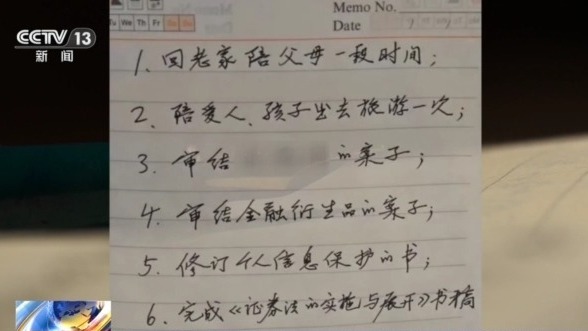 CCTV 13
新闻
Memo No.
Tu We Th Fr Sa Su
Date / /
1. 回老家陪父母一段时间；
2. 陪爱人、孩子出去旅游一次；
3. 审结 的案子；
4. 审结金融衍生品的案子；
5. 修订个人信息保护的书；
6. 完成《证券法的实施与展开》书稿